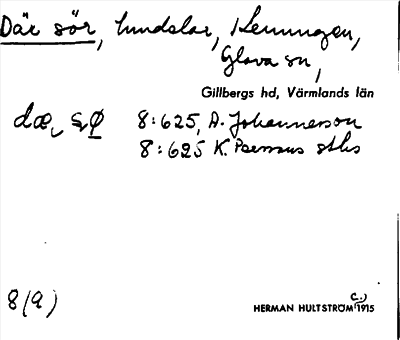 Där sör, lundslar, Kenningen,
Glava sn,
Gillbergs hd, Värmlands län
dæ, sø 8:625, A. Johannerson
8:625 K.
8(a)
HERMAN HULTSTRÖM (c.) 1915